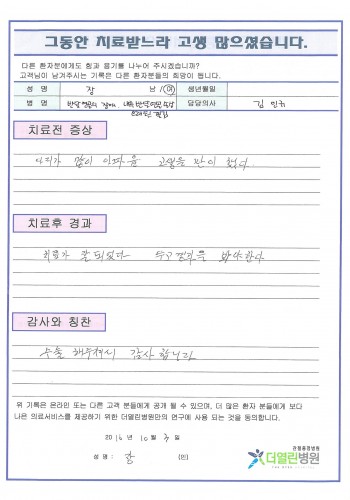 그동안 치료받느라 고생 많으셨습니다.
다른 환자분에게도 힘과 용기를 나누어 주시겠습니까?
고객님이 남겨주시는 기록은 다른 환자분들의 희망이 됩니다.
성 명 장 남 / 여 생년월일
병 명 담당의사 김
치료전 증상
다리가 많이 아파 고생을 많이 했다.
치료후 경과
치료가 잘 되었다
감사와 칭찬
수술 해주셔서 감사합니다
위 기록은 온라인 또는 다른 고객 분들에게 공개 될 수 있으며, 더 많은 환자 분들에게 보다
나은 의료서비스를 제공하기 위한 더열린병원만의 연구에 사용 되는 것을 동의합니다.
2016 년 10 월 3 일
성 명 : 장 (인)
관절중점병원
더열린병원